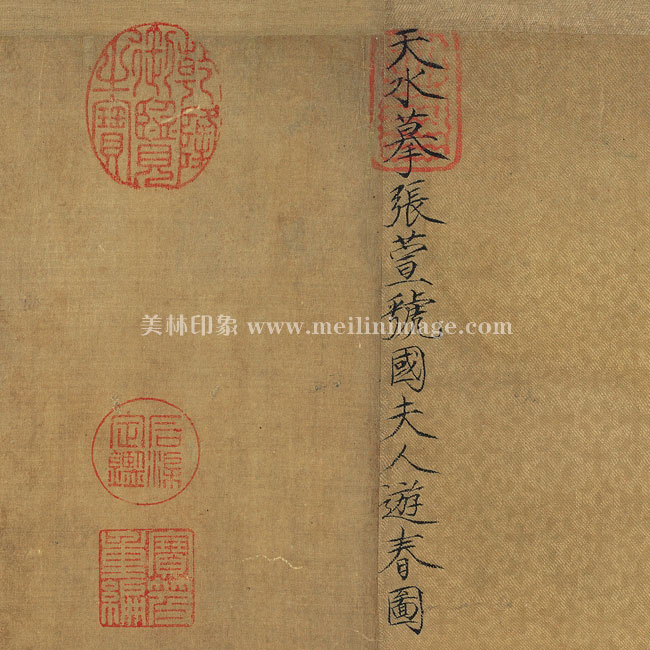 天水摹張萱虢國夫人遊春圖
乾隆
御覽
之寶
石渠
定鑑
寶笈
重編
美林印象 www.meilinimage.com